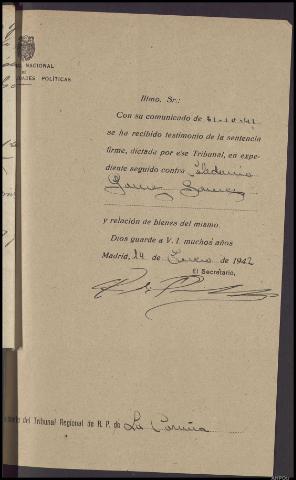 NACIONAL
DE
DADES POLÍTICAS
Iltmo. Sr.:
Con su comunicado de
se ha recibido testimonio de la sentencia
firme, dictada por ese Tribunal, en expe-
diente seguido contra
y relación de bienes del mismo.
Dios guarde a V. I. muchos años
Madrid, 14 de Enero de 1942
El Secretario,
del Tribunal Regional de R. P. de La Coruña